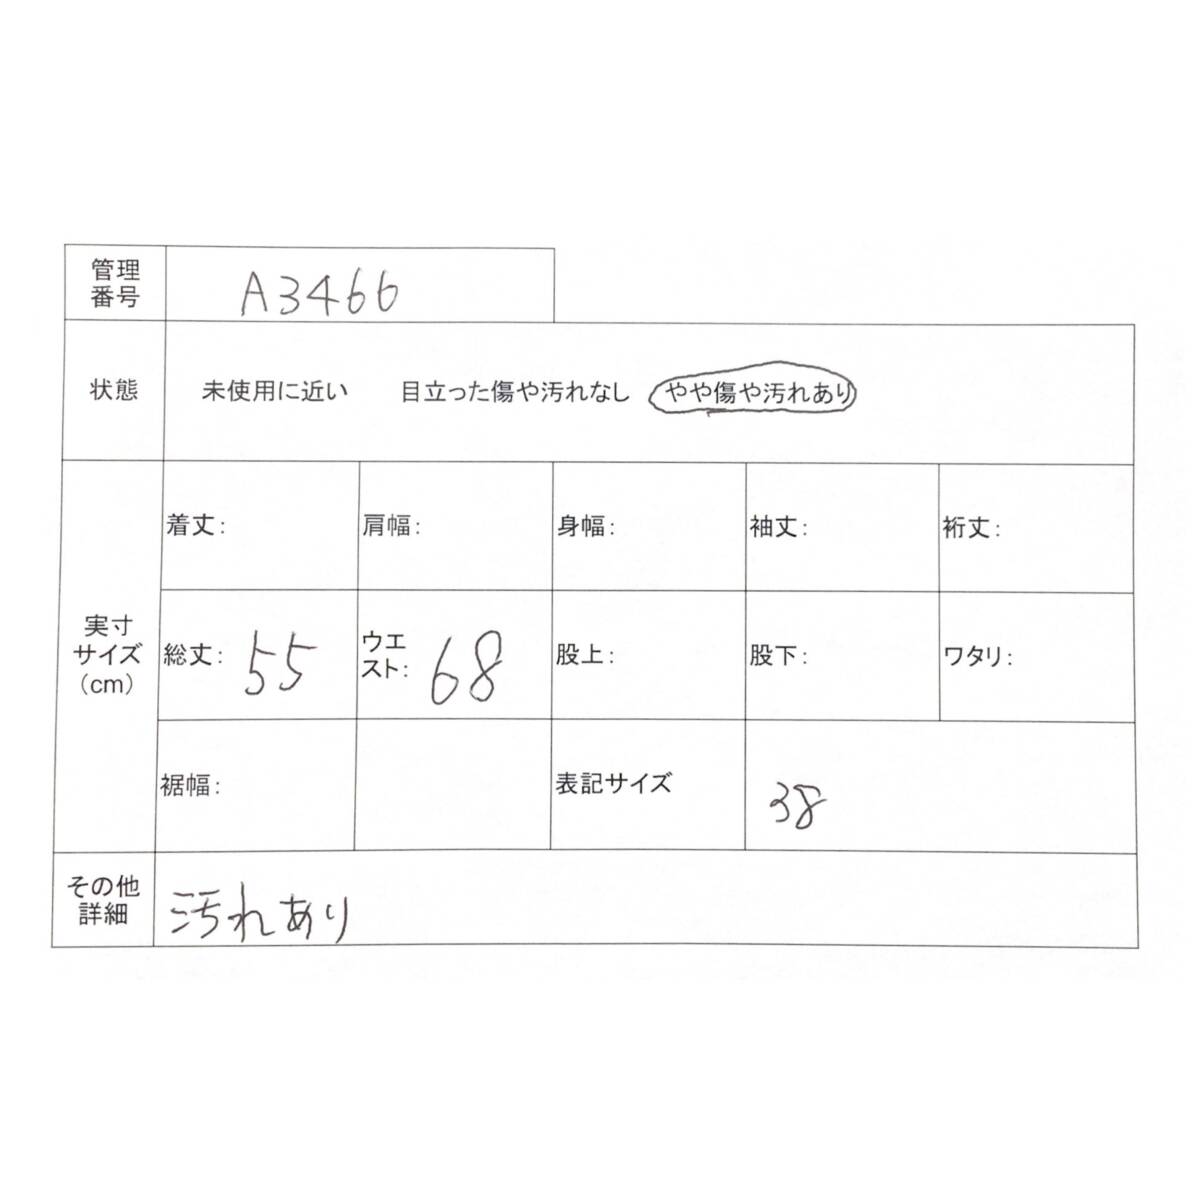 管理
番号
A3466
状態
未使用に近い 目立った傷や汚れなし やや傷や汚れあり
実寸
サイズ
（cm）
着丈: 肩幅: 身幅: 袖丈: 裄丈:
総丈: 55
ウエ
スト: 68
股上: 股下: ワタリ:
裾幅: 表記サイズ 38
その他
詳細
汚れあり